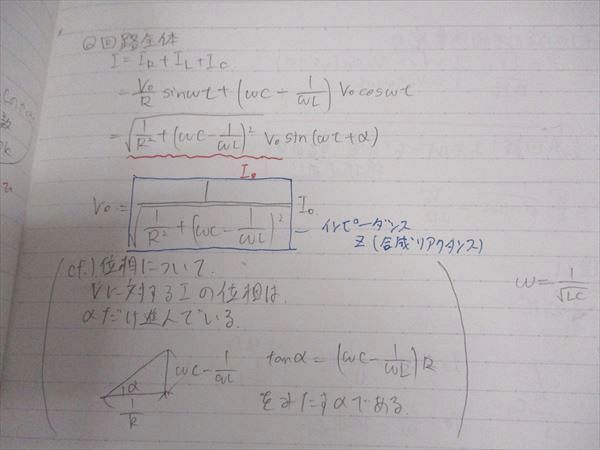 ◎回路全体
I = I_R + I_L + I_C
= V₀/R sinωt + (ωC - 1/ωL) V₀ cosωt
= √(1/R² + (ωC - 1/ωL)²) V₀ sin(ωt+α)
I₀
V₀ = 1/√(1/R² + (ωC - 1/ωL)²) I₀
インピーダンス
Z (合成リアクタンス)
cf.) 位相について.
Vに対するIの位相は.
αだけ進んでいる.
ω = 1/√LC
ωC - 1/ωL
α
1/R
tanα = (ωC - 1/ωL) R
をみたすαである.